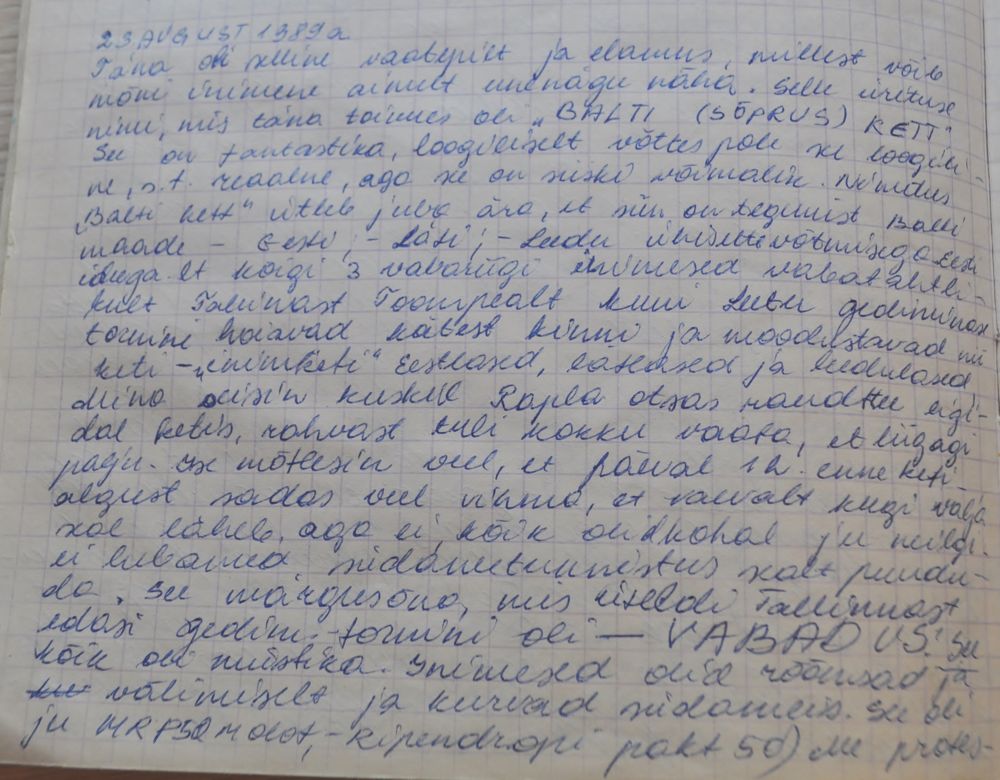 23 AUGUST 1989a
Täna oli selline vaatepilt ja elamus, millest võib
mõni inimene ainult unenägu näha. Selle ürituse
nimi, mis täna toimus oli „BALTI (SÕPRUS) KETT"
See on fantastika, loogiliselt võttes pole see loogili-
ne, s.t. reaalne, aga see on siiski võimalik. Nimetus
„Balti kett" ütleb juba ära, et siin on tegemist Balti
maade - Eesti, - Läti, - Leedu ühisettevõtmisega Eesti
ideega. Et kõigi 3 vabariigi inimesed vabatahtli-
kult Tallinnast Toompealt kuni Leedu Gediminase
tornini hoiavad kätest kinni ja moodustavad nii
keti - „inimketi" Eestlased, lätlased ja leedulased
Mina seisin kuskil Rapla otsas
dal ketis, rahvast tuli kokku vaata, et liigagi
palju. Ise mõtlesin veel, et päeval 1 h. enne keti-
algust sadas veel vihma, et vaevalt keegi välja
sal läheb, aga ei, kõik olid kohal ju neilgi
ei lubanud südametunnistus sealt puudu-
da. See märgusõna, mis üteldi Tallinnast
edasi Gedim.-tornini oli — VABADUS! See
kõik oli müstika. Inimesed olid rõõmsad ja
välimiselt ja kurvad südameis. See oli
ju MRP50 Molot,- Ripendropi pakt 50) Me protes-